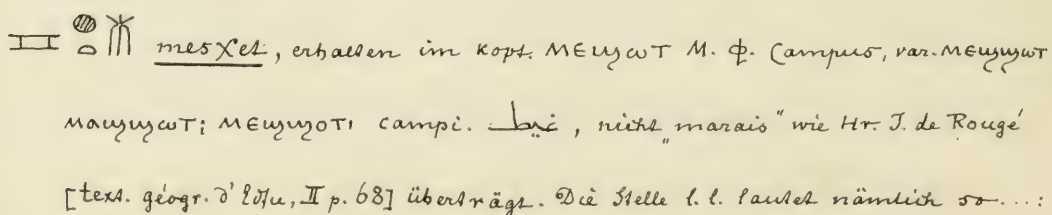 mesχet, erhalten im kopt. ⲙⲉϣϣⲱⲧ M. ф. Campus, var. ⲙⲉϣϣⲱⲧ
ⲙⲁϣϣⲱⲧ; ⲙⲉϣϣⲟϯ campi. غيط, nicht „marais" wie Hr. J. de Rougé
[text. géogr. d'Edfu, II p. 68] überträgt. Die Stelle l. l. lautet nämlich so....: